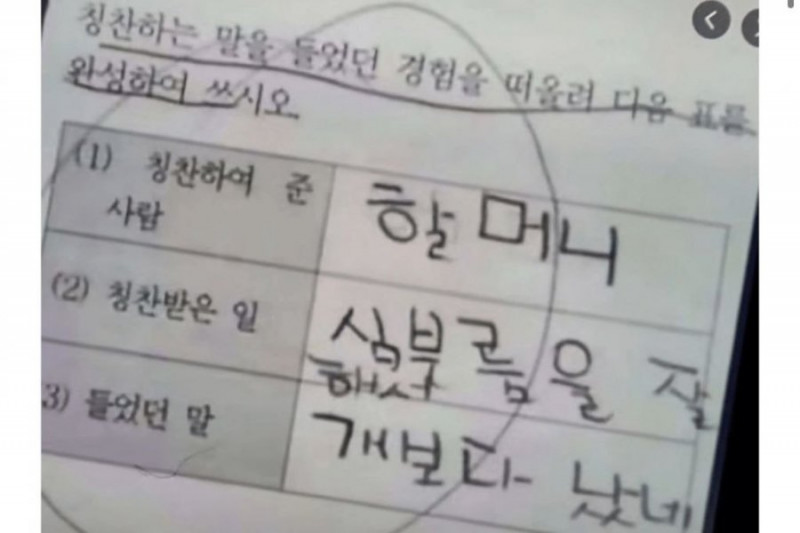 칭찬하는 말을 들었던 경험을 떠올려 다음 표를
완성하여 쓰시오.
(1) 칭찬하여 준
사람
할머니
(2) 칭찬받은 일
심부름을 잘
했
3) 들었던 말
개보다 낫네